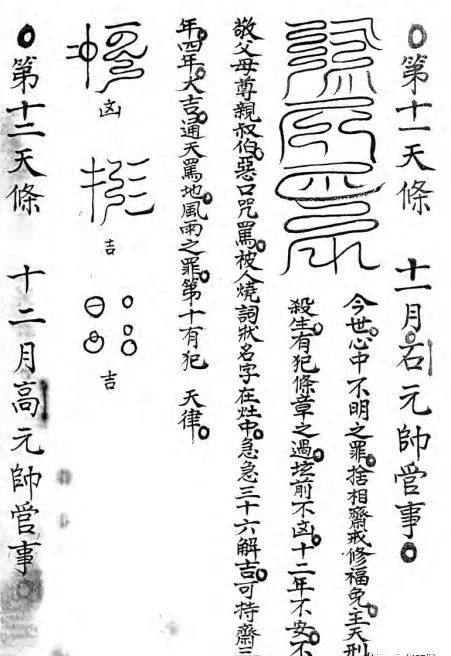 第十一天條 十一月石元帥管事
今世心中不明之罪捨相齋戒修福免主天刑
殺生有犯條章之過坟前不凶十二年不安不
敬父母尊親叔伯惡口咒罵被人燒詞狀名字在灶中急急三十六解吉可持齋三
年四年大吉通天罵地風雨之罪第十有犯 天律
凶
吉
吉
第十二天條 十二月高元帥管事